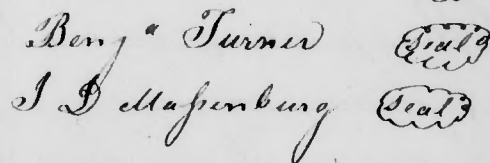 Benja Turner Seal
J D Massenburg Seal